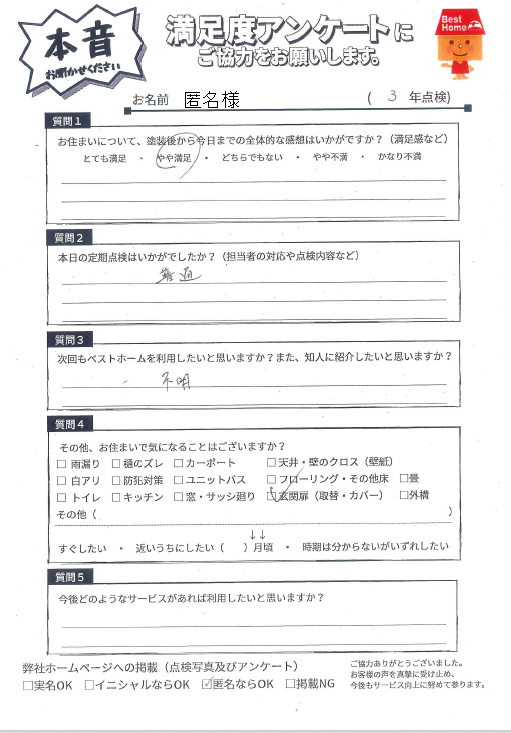 本音
お聞かせください
満足度アンケートに
ご協力をお願いします。
Best Home
お名前 匿名様 ( 3 年点検)
質問1
お住まいについて、塗装後から今日までの全体的な感想はいかがですか？（満足感など）
とても満足 ・ やや満足 ・ どちらでもない ・ やや不満 ・ かなり不満
質問2
本日の定期点検はいかがでしたか？（担当者の対応や点検内容など）
普通
質問3
次回もベストホームを利用したいと思いますか？また、知人に紹介したいと思いますか？
不明
質問4
その他、お住まいで気になることはございますか？
□ 雨漏り □ 樋のズレ □ カーポート □ 天井・壁のクロス（壁紙）
□ 白アリ □ 防犯対策 □ ユニットバス □ フローリング・その他床 □畳
□ トイレ □ キッチン □ 窓・サッシ廻り ☑玄関扉（取替・カバー） □外構
その他（ ）
↓↓
すぐしたい ・ 近いうちにしたい（ ）月頃 ・ 時期は分からないがいずれしたい
質問5
今後どのようなサービスがあれば利用したいと思いますか？
弊社ホームページへの掲載（点検写真及びアンケート）
□実名OK □イニシャルならOK ☑匿名ならOK □掲載NG
ご協力ありがとうございました。
お客様の声を真摯に受け止め、
今後もサービス向上に努めて参ります。